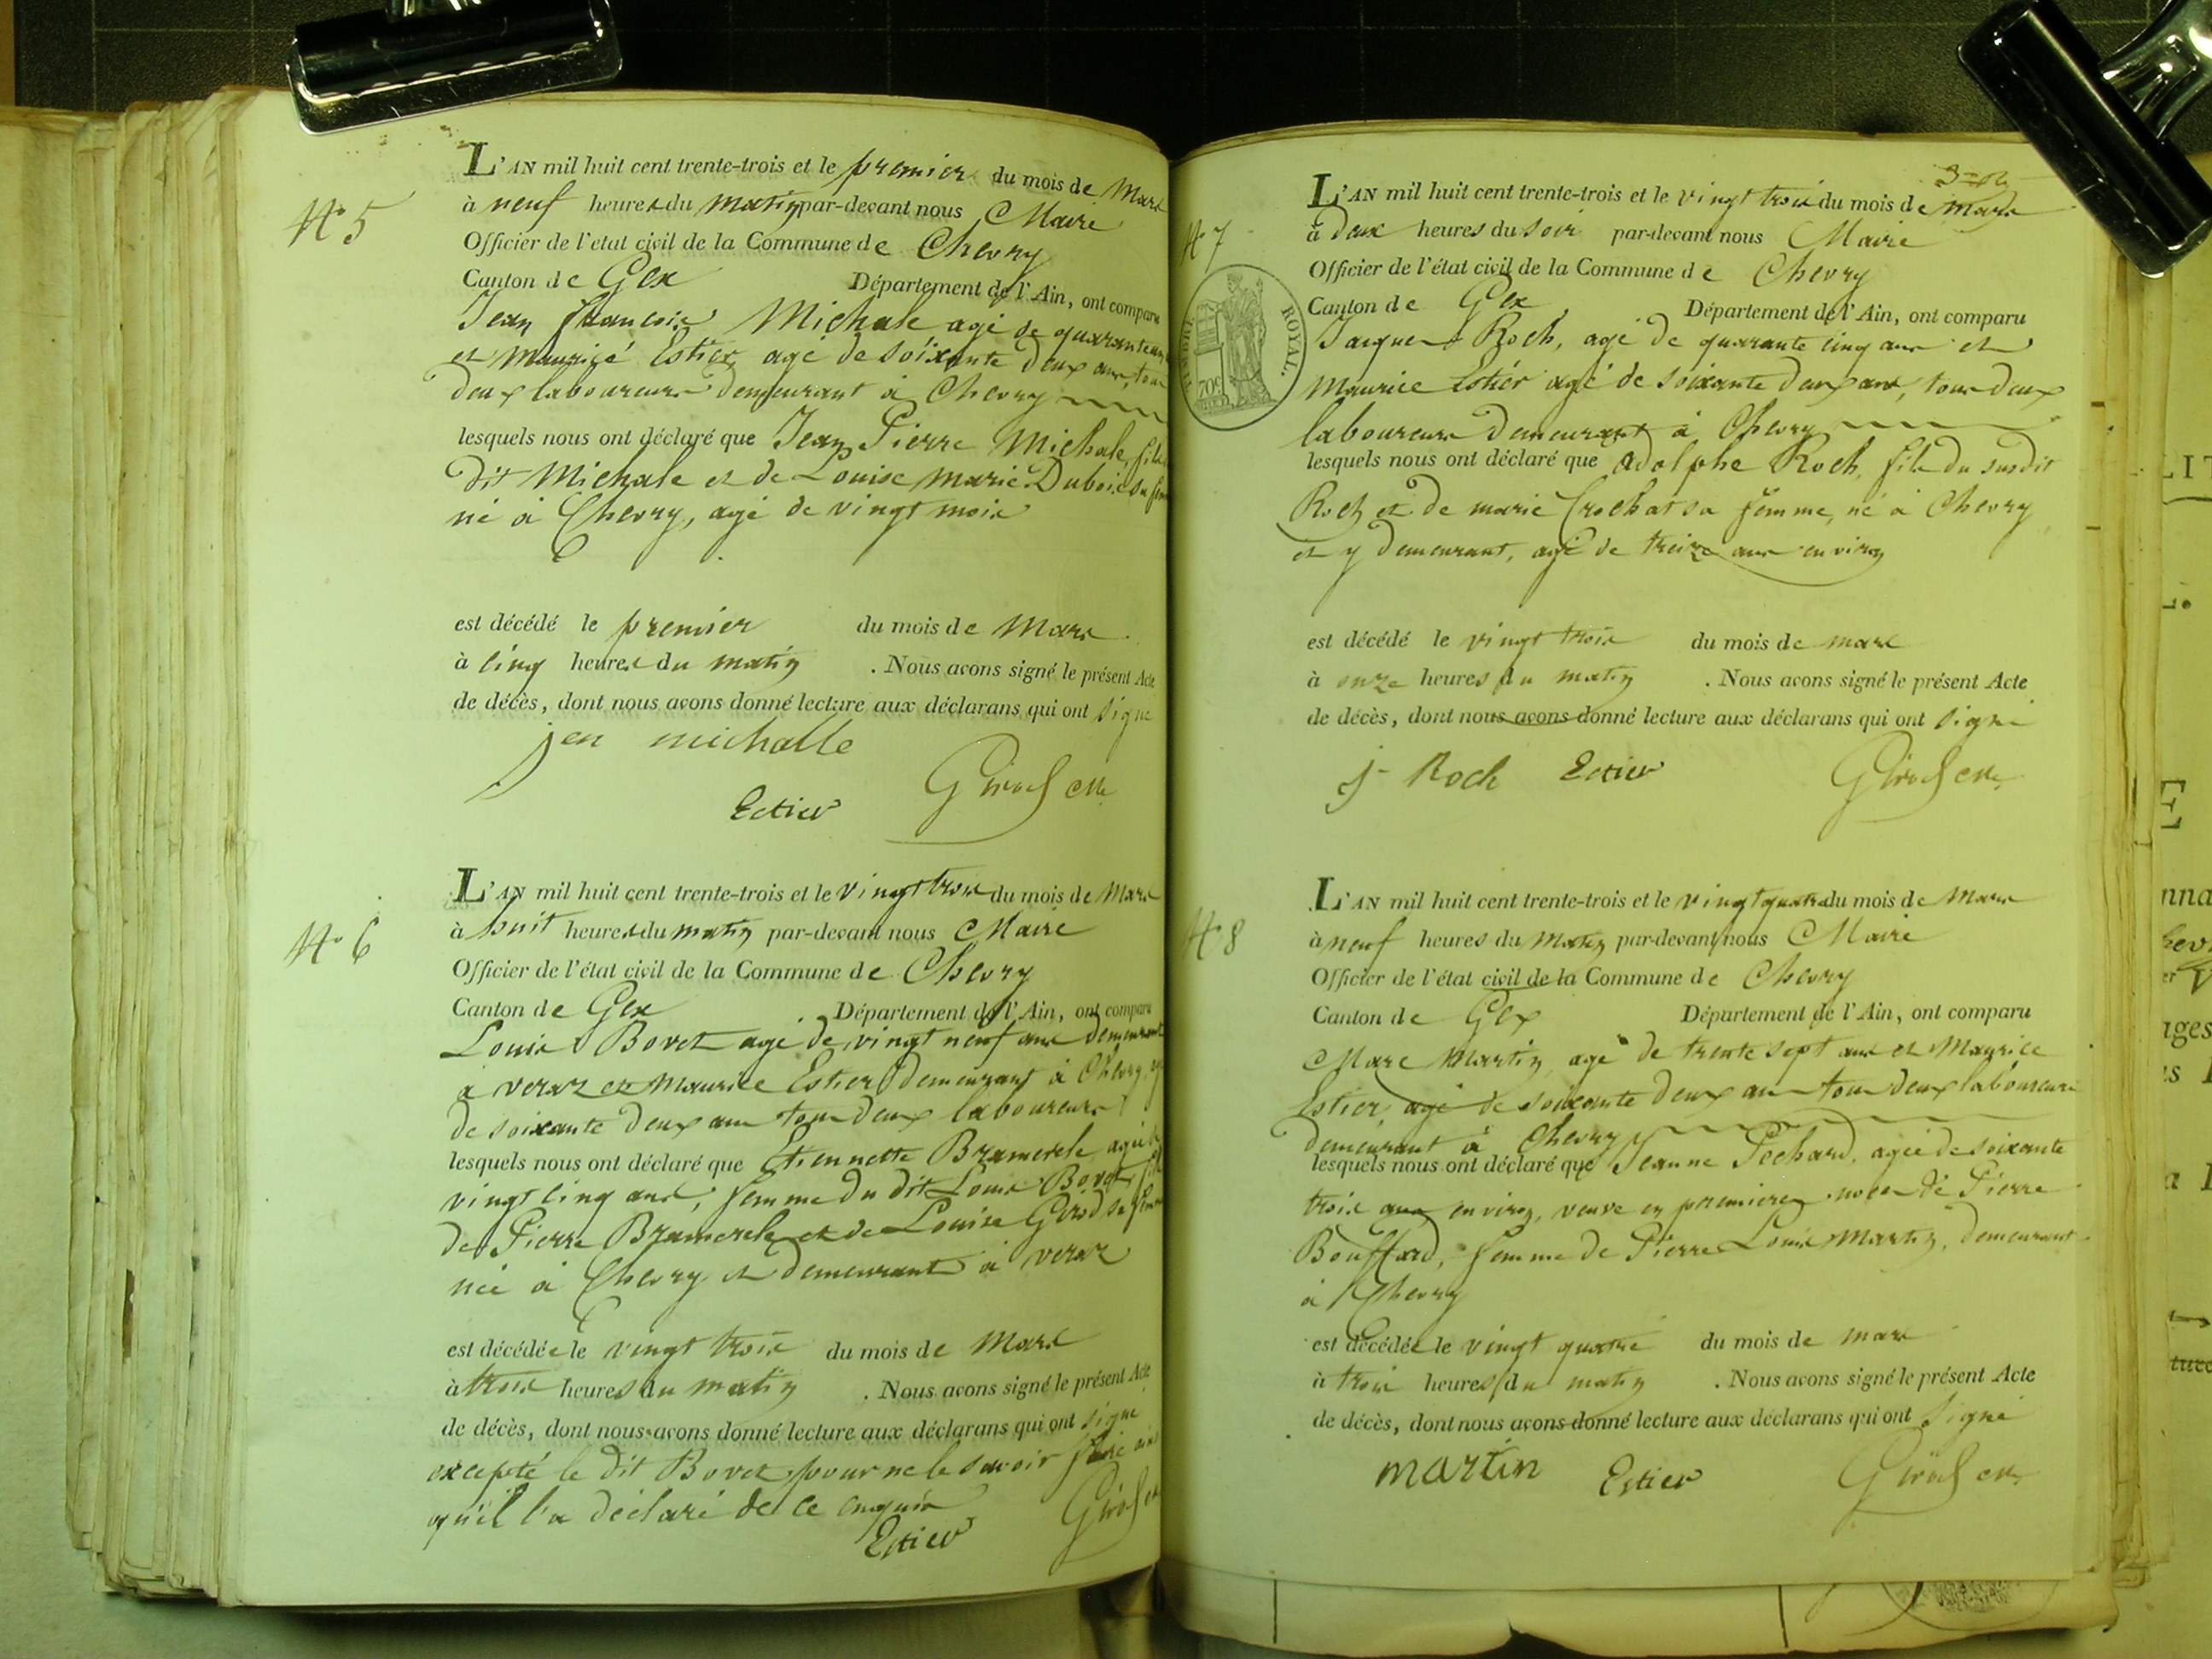 N° 5
L'AN mil huit cent trente-trois et le premier du mois de Mars
à neuf heures du matin par-devant nous Maire
Officier de l'etat civil de la Commune de Chevry
Canton de Gex Département de l'Ain, ont comparu
Jean François Michale agé de quarante
et Maurice Estier agé de soixante deux ans, tous
deux laboureurs demeurant à Chevry
lesquels nous ont déclaré que Jean Pierre Michale, fils
dit Michale et de Louise Marie Dubois sa
né à Chevry, agé de vingt mois
est décédé le premier du mois de Mars
à cinq heures du matin . Nous avons signé le présent Acte
de décès, dont nous avons donné lecture aux déclarans qui ont signé
jen michalle
Estier Girod
N° 6
L'AN mil huit cent trente-trois et le vingt trois du mois de Mars
à huit heures du matin par-devant nous Maire
Officier de l'état civil de la Commune de Chevry
Canton de Gex Département de l'Ain, ont comparu
Louis Bovet agé de vingt neuf ans demeurant
à veraz et Maurice Estier demeurant à Chevry,
de soixante deux ans tous deux laboureurs
lesquels nous ont déclaré que Etiennette Bramerele agée
vingt cinq ans, femme du dit Louis Bovet,
de Pierre Bramerele et de Louise Girod sa
née à Chevry et demeurant à veraz
est décédée le vingt trois du mois de Mars
à trois heures du matin . Nous avons signé le présent Acte
de décès, dont nous avons donné lecture aux déclarans qui ont signé
excepté le dit Bovet pour ne le savoir faire
qu'il l'a déclaré de ce enquis
Estier Girod
N° 7
L'AN mil huit cent trente-trois et le vingt trois du mois de mars
à deux heures du soir par-devant nous Maire
Officier de l'état civil de la Commune de Chevry
Canton de Gex Département de l'Ain, ont comparu
Jacques Roch, agé de quarante cinq ans et
Maurice Estier agé de soixante deux ans, tous deux
laboureurs demeurant à Chevry
lesquels nous ont déclaré que Adolphe Roch, fils du susdit
Roch et de marie Crochat sa femme, né à Chevry
et y demeurant, agé de treize ans environ
TIMBRE ROYAL.
70c
est décédé le vingt trois du mois de mars
à onze heures du matin . Nous avons signé le présent Acte
de décès, dont nous avons donné lecture aux déclarans qui ont signé
j Roch Estier Girod
N° 8
L'AN mil huit cent trente-trois et le vingt quatre du mois de Mars
à neuf heures du Matin par-devant nous Maire
Officier de l'état civil de la Commune de Chevry
Canton de Gex Département de l'Ain, ont comparu
Marc Martin agé de trente sept ans et Maurice
Estier agé de soixante deux ans tous deux laboureurs
demeurant à Chevry
lesquels nous ont déclaré que Jeanne Pechard, agée de soixante
trois ans environ, veuve en premieres noces de Pierre
Bouffard, femme de Pierre Louis Martin, demeurant
à Chevry
est décédée le vingt quatre du mois de mars
à trois heures du matin . Nous avons signé le présent Acte
de décès, dont nous avons donné lecture aux déclarans qui ont signé
martin Estier Girod